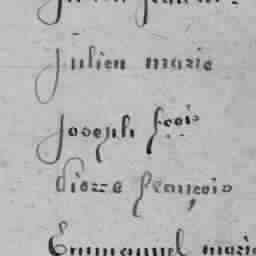 julien marie
joseph fçois
pierre françois
Emmanuel marie